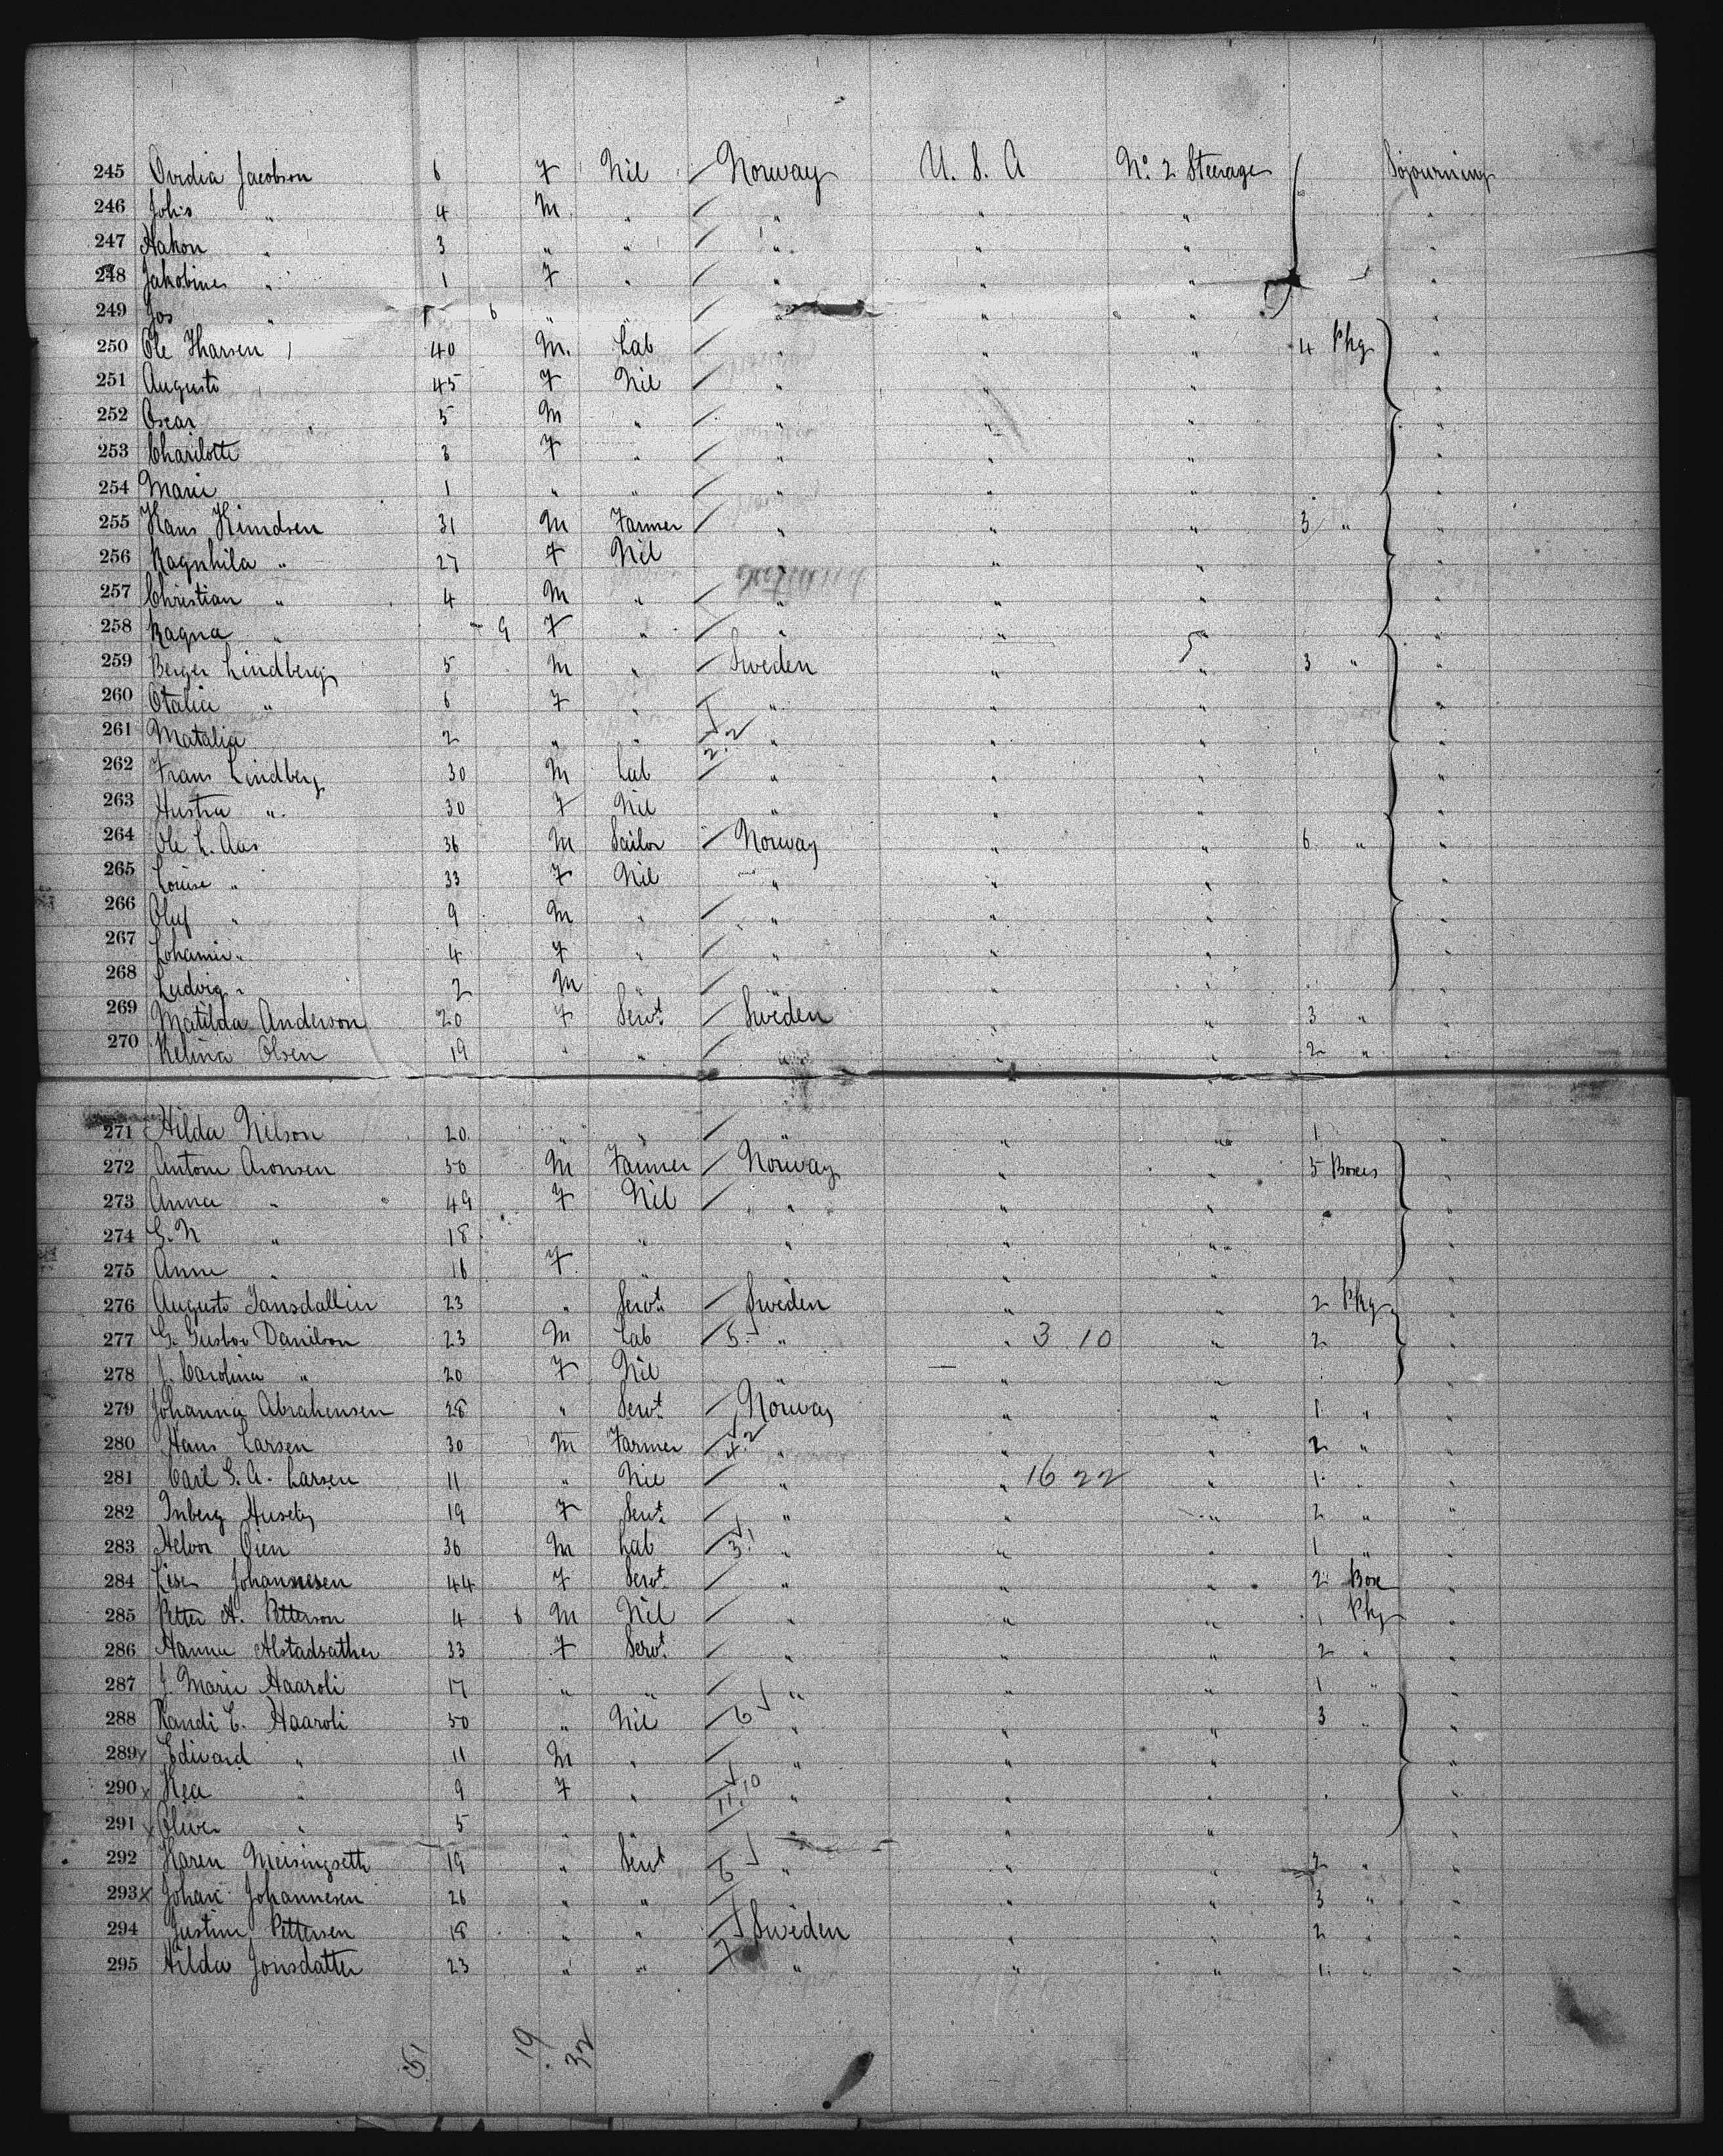 245 Ovidia Jacobson 6 F Nil / Norway U. S. A No. 2 Steerage Sojourning
246 Johs " 4 M. " / " " " "
247 Hakon " 3 " " / " " " "
248 Jakobine " 1 F " / " " " "
249 Jos " 6 " " / " " " "
250 Ole Hansen 40 M. Lab / " " " 4 Pkg "
251 Auguste 45 F Nil / " " " "
252 Oscar " 5 M " / " " " "
253 Charilotte 3 F " / " " " "
254 Marie 1 " " / " " " "
255 Hans 31 M Farmer / " " " 3 " "
256 Ragnhila " 27 F Nil " " " "
257 Christian " 4 M " / " " " "
258 Ragna " 9 F " / " " " "
259 Berger Lindberg 5 M " / Sweden " " 3 " "
260 Otalia " 6 F " " " " "
261 Matalia 2 " " 2.2 " " " "
262 Frans Lindberg 30 M Lab / " " " "
263 Hustra " 30 F Nil " " " "
264 Ole L. Aas 36 M Sailor / Norway " " 6 " "
265 Louise " 33 F Nil " " " "
266 Oluf " 9 M " / " " " "
267 " 4 F " / " " " "
268 Ludvig " 2 M " / " " " "
269 Matilda Anderson 20 F Servt / Sweden " " 3 " "
270 Olsen 19 " " / " " " 2 " "
271 Hilda Nilson 20 " " / " " " 1 "
272 Antone Aronsen 50 M Farmer / Norway " " 5 Boxes "
273 Anna " 49 F Nil / " " " "
274 G. N " 18 " " " " "
275 Anne " 16 F " " " "
276 Auguste 23 " Servt / Sweden " " 2 Pkg "
277 G. Gustov Danilson 23 M Lab 5 " " 3 10 " 2 "
278 J. Carolina " 20 F Nil " " " "
279 Johanna Abrahensen 28 " Servt / Norway " " 1 " "
280 Hans Larsen 30 M Farmer 4.2 " " " 2 " "
281 Carl G. A. Larsen 11 " Nil / " " 16 22 " 1 " "
282 Inberg Huseby 19 F Servt / " " " 2 " "
283 Helvor Oien 36 M Lab 3.1 " " " 1 " "
284 Lise Johannesen 44 F Servt / " " " 2 Box "
285 Petter A. Petterson 4 6 M Nil " " " 1 Pkg "
286 Hanna Alstadsather 33 F Servt / " " " 2 " "
287 J. Marie Haaroli 17 " " / " " " 1 " "
288 Randi E. Haaroli 50 " Nil 6 " " " 3 " "
289 Edward " 11 M " / " " " "
290 x " 9 F " 11.10 " " " "
291 x Olive " 5 " " / " " " "
292 Karen Meisingseth 19 " Servt 6 " " " 2 " "
293 x Johan Johannesen 26 " " / " " " 3 " "
294 Justine Pettersen 18 " " / Sweden " " 2 " "
295 Hilda Jonsdatter 23 " " 7 " " " 1 " "
51 19 32